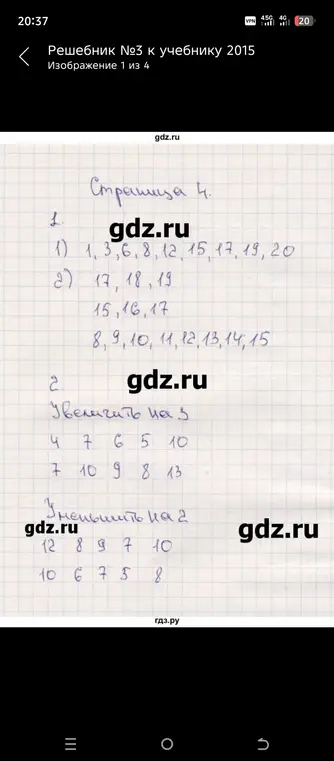 20:37
VPN 4.5G 4G 20
Решебник №3 к учебнику 2015
Изображение 1 из 4
gdz.ru
Страница 4.
1.
gdz.ru
1) 1, 3, 6, 8, 12, 15, 17, 19, 20
2) 17, 18, 19
15, 16, 17
8, 9, 10, 11, 12, 13, 14, 15
gdz.ru
2
Увеличить на 3
4 7 6 5 10
7 10 9 8 13
Уменьшить на 2
gdz.ru
gdz.ru
12 8 9 7 10
10 6 7 5 8
гдз.ру